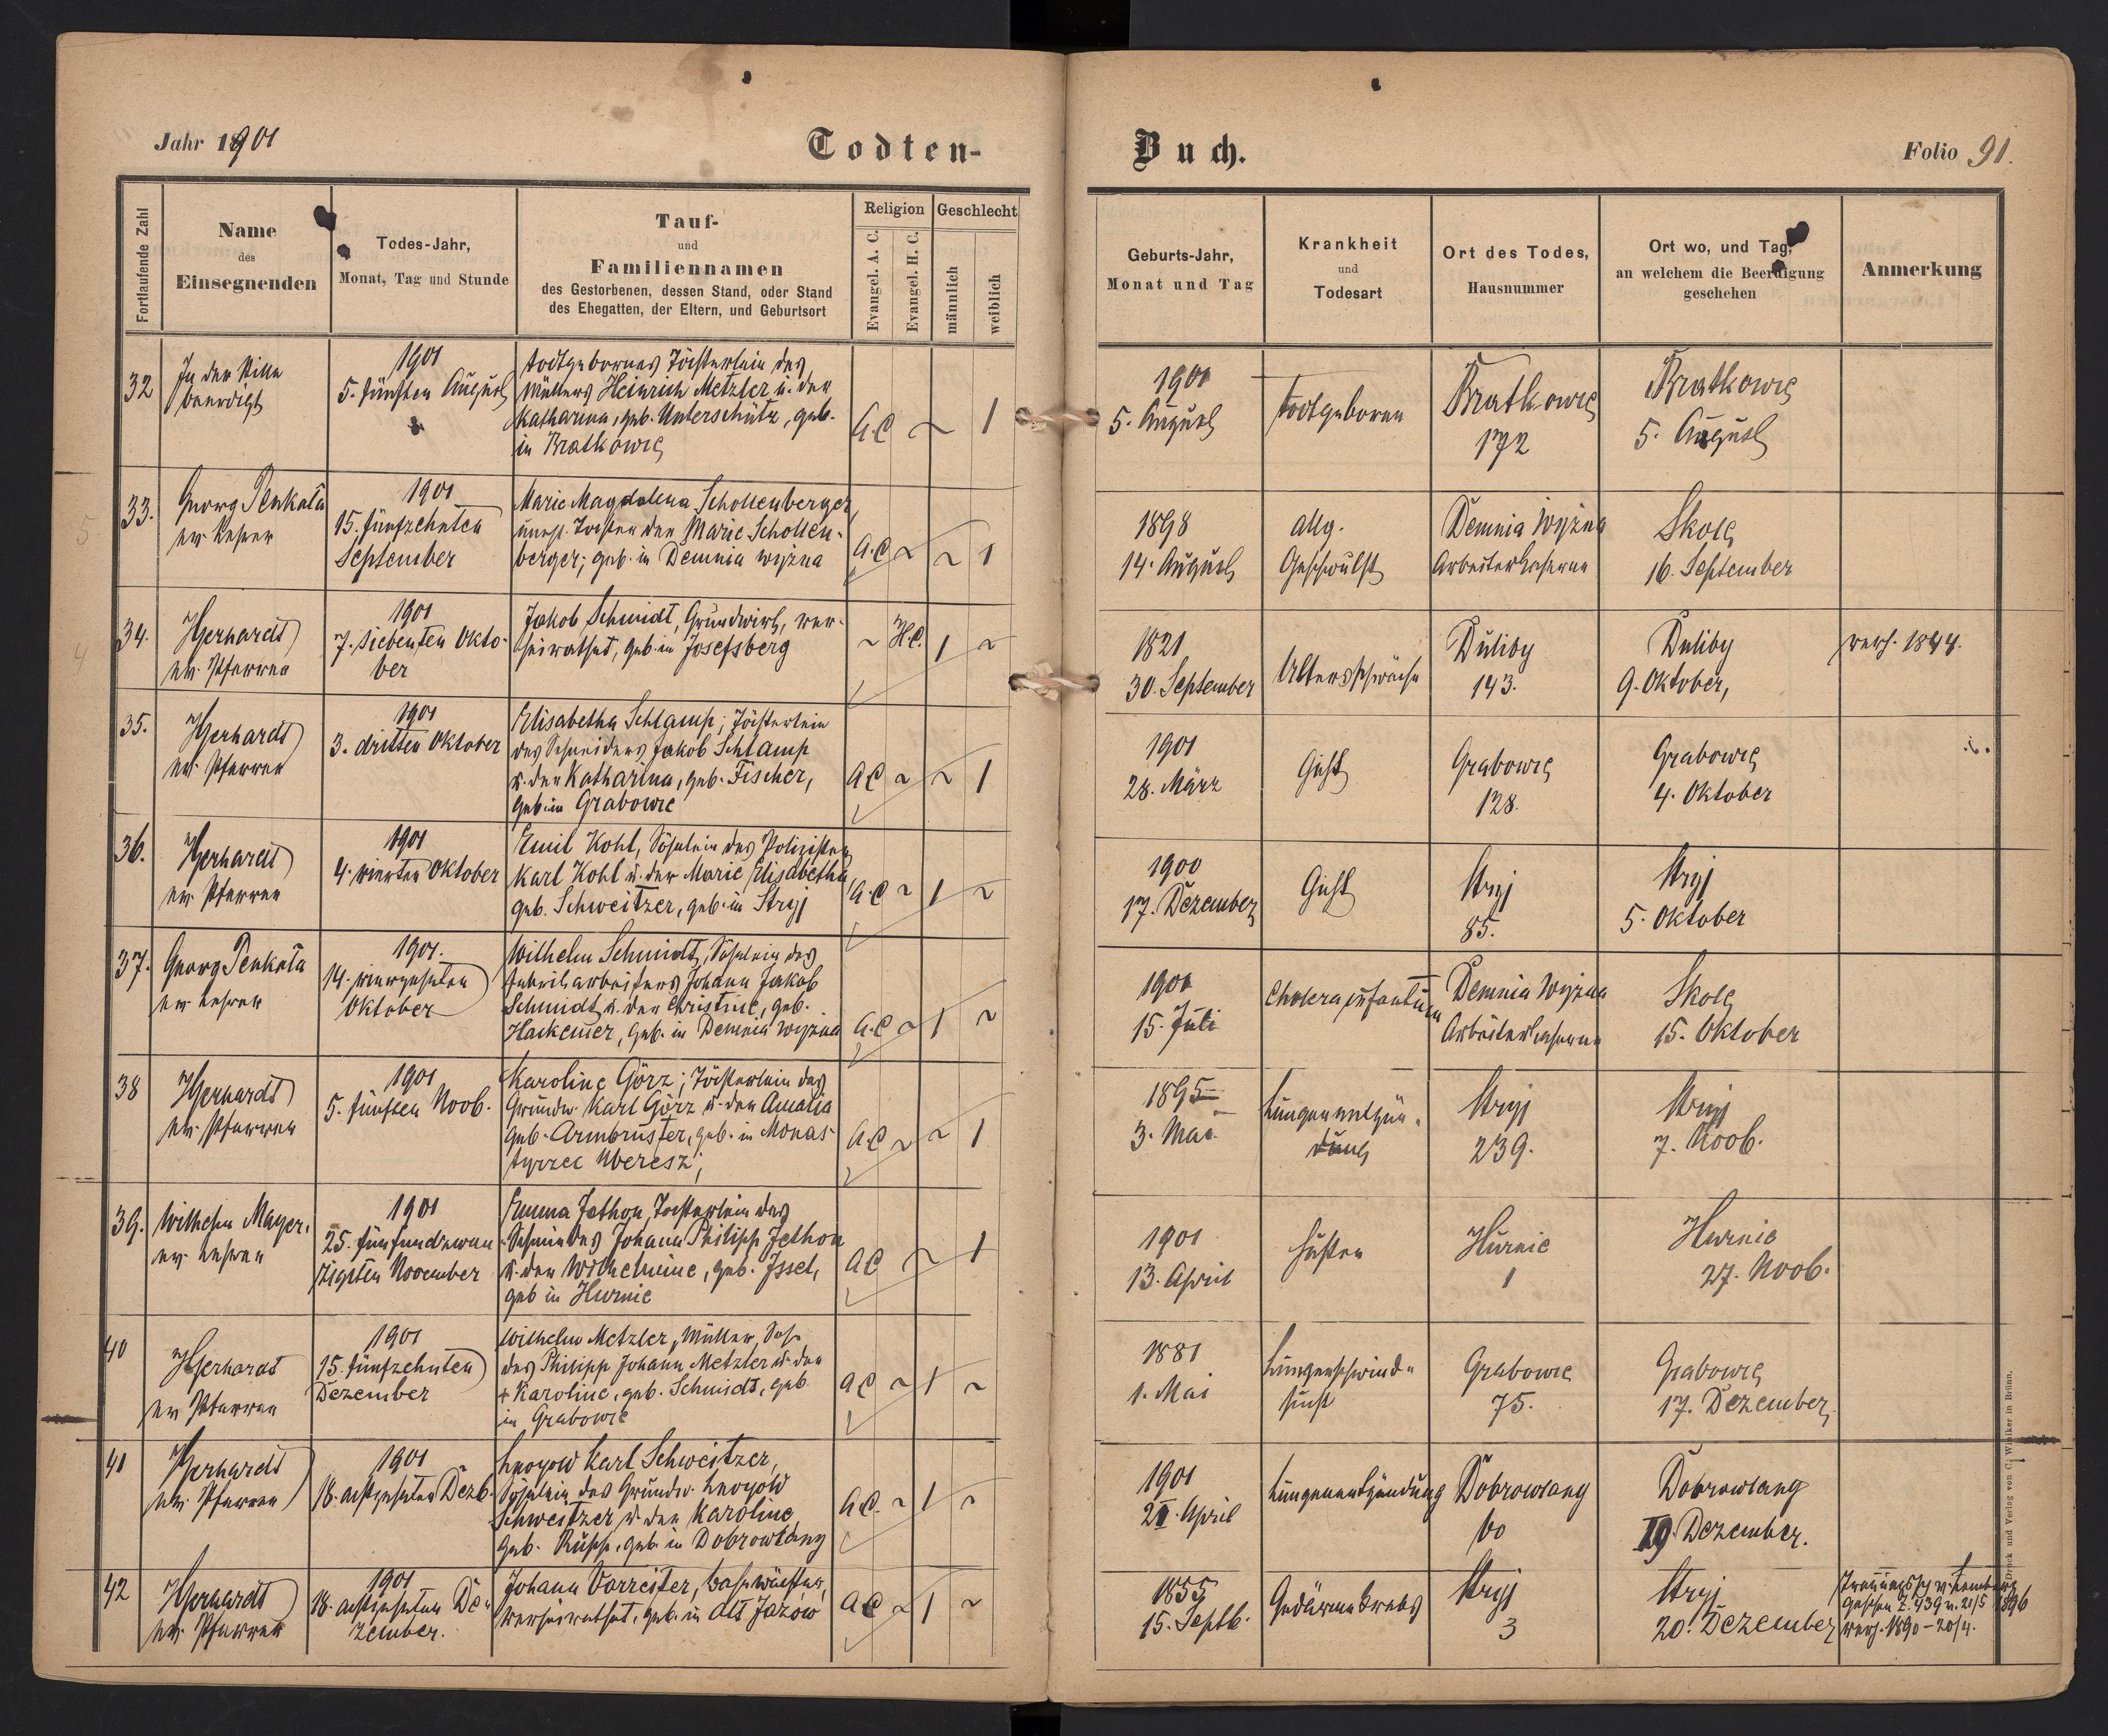 Jahr 1901
Todten-
Buch.
Folio 91.
Fortlaufende Zahl
Name
des
Einsegnenden
Todes-Jahr,
Monat, Tag und Stunde
Tauf-
und
Familiennamen
des Gestorbenen, dessen Stand, oder Stand
des Ehegatten, der Eltern, und Geburtsort
Religion
Evangel. A. C.
Evangel. H. C.
Geschlecht
männlich
weiblich
Geburts-Jahr,
Monat und Tag
Krankheit
und
Todesart
Ort des Todes,
Hausnummer
Ort wo, und Tag,
an welchem die Beerdigung
geschehen
Anmerkung
32
In der Stille
beerdigt
1901
5. fünften August
todtgebornes Töchterlein des
Müllers Heinrich Metzler u. der
Katharina, geb. Unterschütz, geb.
in Bratkowce
A.C ~ 1
1901
5. August
todtgeboren
Bratkowce
172
Bratkowce
5. August
33.
Georg Penkala
ev. Lehrer
1901
15. fünfzehnten
September
Marie Magdalena Schollenberger,
unehl. Tochter der Marie Schollen-
berger; geb. in Demnia wyżna
A.C ~ ~ 1
1898
14. August
allg.
Geschwulst
Demnia Wyżna
Arbeiterkaserne
Skole
16. September
34.
HGerhardt
ev. Pfarrer
1901
7. siebenten Okto-
ber
Jakob Schmidt, Grundwirt, ver-
heirathet, geb. in Josefsberg
~ H.C. 1 ~
1821
30. September
Altersschwäche
Duliby
143.
Duliby
9. Oktober,
verh. 1844.
35.
HGerhardt
ev. Pfarrer
1901
3. dritten Oktober
Elisabetha Schlamp; Töchterlein
des Schneiders Jakob Schlamp
u. der Katharina, geb. Fischer,
geb. in Grabowce
A.C ~ ~ 1
1901
28. März
Gicht
Grabowce
128.
Grabowce
4. Oktober
36.
HGerhardt
ev. Pfarrer
1901
4. vierten Oktober
Emil Kohl, Söhnlein des Polizisten
Karl Kohl u. der Marie Elisabetha,
geb. Schweitzer, geb. in Stryj
A.C ~ 1 ~
1900
17. Dezember
Gicht
Stryj
85.
Stryj
5. Oktober
37.
Georg Penkala
ev. Lehrer
1901.
14. vierzehnten
Oktober
Wilhelm Schmidt, Söhnlein des
Fabriksarbeiters Johann Jakob
Schmidt u. der Christine, geb.
Hackemer, geb. in Demnia Wyżna
A.C ~ 1 ~
1901
15. Juli
Cholera infantum
Demnia Wyżna
Arbeiterkaserne
Skole
15. Oktober
38
HGerhardt
ev. Pfarrer
1901
5. fünften Novb.
Karoline Görz; Töchterlein des
Grundw. Karl Görz u. der Amalia
geb. Armbruster, geb. in Monas-
tyrzec Uberesz;
A.C ~ ~ 1
1895
3. Mai
Lungenentzün-
dung
Stryj
239.
Stryj
7. Novb.
39.
Wilhelm Mayer,
ev. Lehrer
1901
25. fünfundzwan-
zigsten November
Emma Jethon, Töchterlein des
Schmiedes Johann Philipp Jethon
u. der Wilhelmine, geb. Issel,
geb in Hurnie
A.C ~ 1
1901
13. April
Husten
Hurnie
1
Hurnie
27. Novb.
40
HGerhardt
ev. Pfarrer
1901
15. fünfzehnten
Dezember
Wilhelm Metzler, Müller, Sohn
des Philipp Johann Metzler u. der
+ Karoline, geb. Schmidt, geb.
in Grabowce
A.C ~ 1 ~
1881
1. Mai
Lungenschwind-
sucht
Grabowce
75.
Grabowce
17. Dezember
41
HGerhardt
ev. Pfarrer
1901
18. achtzehnten Dezb.
Leopold Karl Schweitzer,
Söhnlein des Grundw. Leopold
Schweitzer u. der Karoline,
geb. Rupp, geb. in Dobrowlany
A.C. ~ 1 ~
1901
April
Lungenentzündung
Dobrowlany
60
Dobrowlany
19. Dezember.
42
HGerhardt
ev. Pfarrer
1901
18. achtzehnten De-
zember.
Johann Vorreiter, Bahnwächter,
verheirathet, geb. in Alt Jazow
A.C ~ 1 ~
1855
15. Septb.
Gedärmekrebs
Stryj
3
Stryj
20. Dezember
Trauungssch. v. Lemberg
Z. 739 v. 21/5 1896
verh. 1890 - 20/4.
Druck und Verlag von C. Winiker in Brünn.